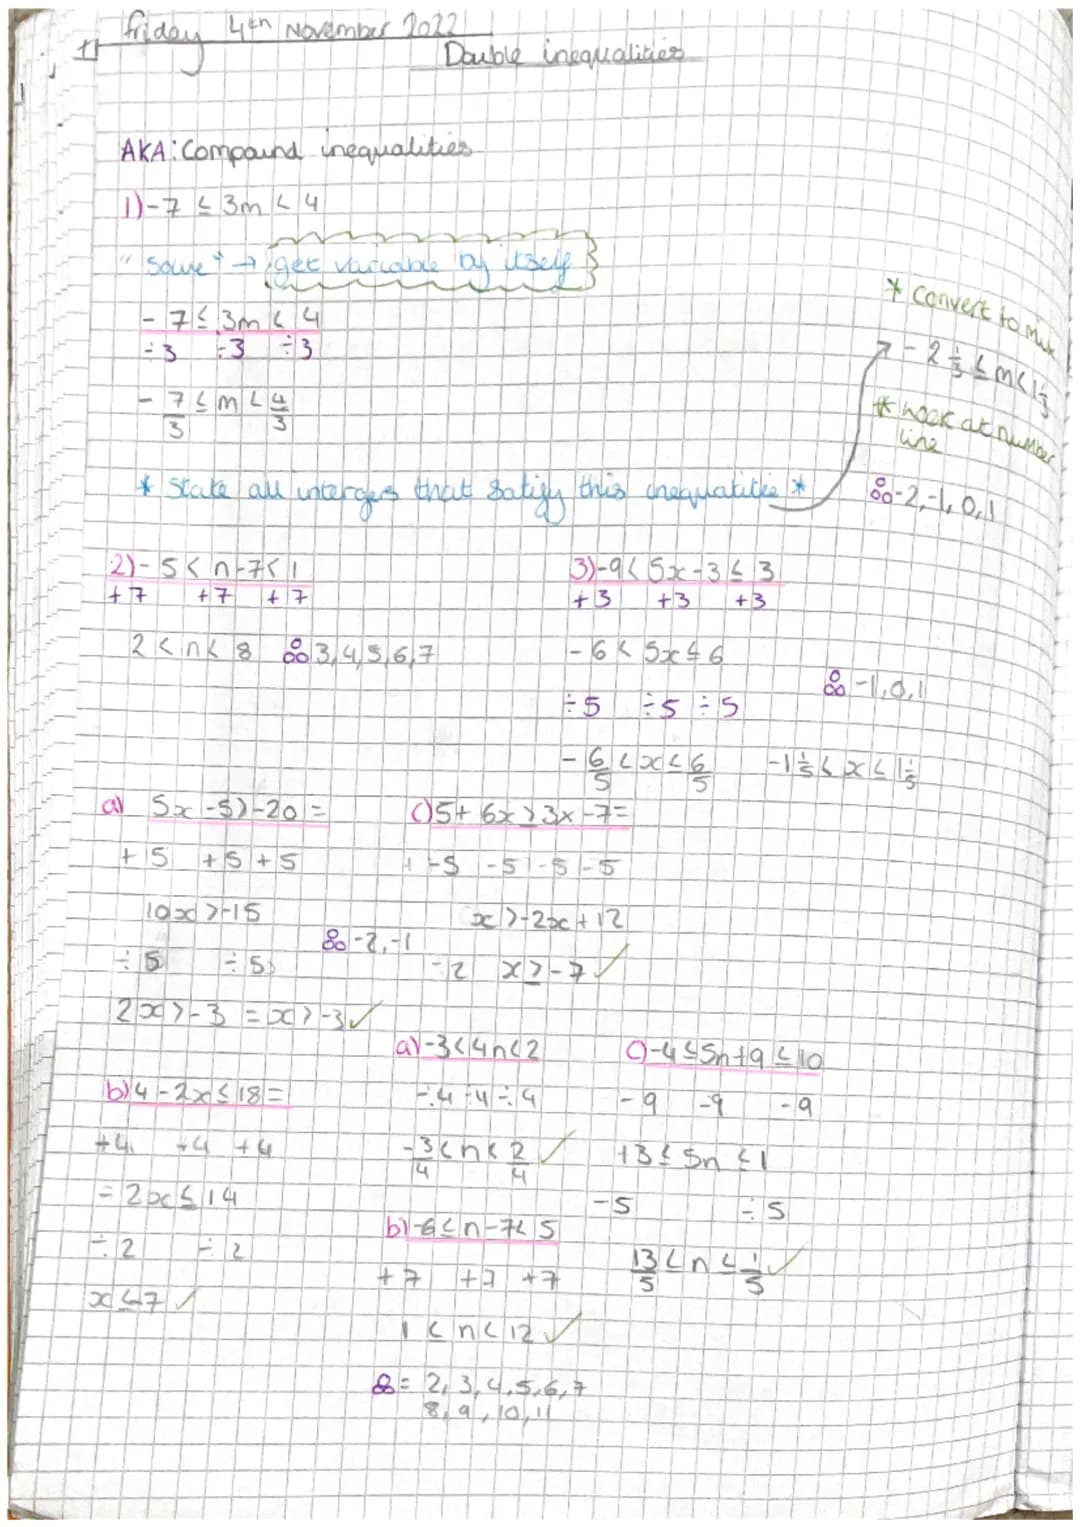 friday 4th November 2022
Double inequalities
AKA: Compound inequalities
1) -7 ≤ 3m < 4
"solve" → get variable by itself
-7 ≤ 3m < 4
÷3 ÷3 ÷3
-7/3 ≤ m < 4/3
* State all intergers that satisfy this inequalitie *
* Convert to mix
-2 1/3 ≤ m < 1 1/3
* look at number
line
-2, -1, 0, 1
2) -5 < n-7 < 1
+7 +7 +7
2 < n < 8 3, 4, 5, 6, 7
3) -9 < 5x-3 ≤ 3
+3 +3 +3
-6 < 5x ≤ 6
-1, 0, 1
÷5 ÷5 ÷5
-6/5 < x ≤ 6/5 -1 1/5 < x ≤ 1 1/5
a) 5x -5 > -20 =
+5 +5 +5
10x > -15
÷5 ÷5
-2, -1
2x > -3 = x > -3 ✓
c) 5 + 6x ≥ 3x -7 =
-5 -5 -5 -5
x > -2x + 12
-2 x ≥ -7 ✓
b) 4 - 2x ≤ 18 =
+4 +4 +4
= 2x ≤ 14
÷2 ÷2
x ≤ 7 ✓
a) -3 < 4n < 2
÷4 ÷4 ÷4
-3/4 < n < 2/4 ✓
b) -6 ≤ n-7 < 5
+7 +7 +7
1 ≤ n < 12 ✓
= 2, 3, 4, 5, 6, 7
8, 9, 10, 11
c) -4 ≤ 5n+9 ≤ 10
-9 -9 -9
13 ≤ 5n ≤ 1
-5 ÷5
13/5 ≤ n ≤ 1/5 ✓